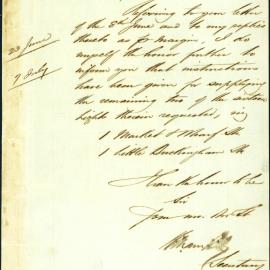 Referring to your letter
of the 8th June and to our replies
23 June
7 July
noted in margin, I do
myself the honor further to
inform you that instructions
have been given for supplying
the remaining two of the sixteen
lights therein requested, viz
1 Market & Wharf St
1 Little Buckingham St
I have the honor to be
Sir
Your mo. ob. St
Secretary